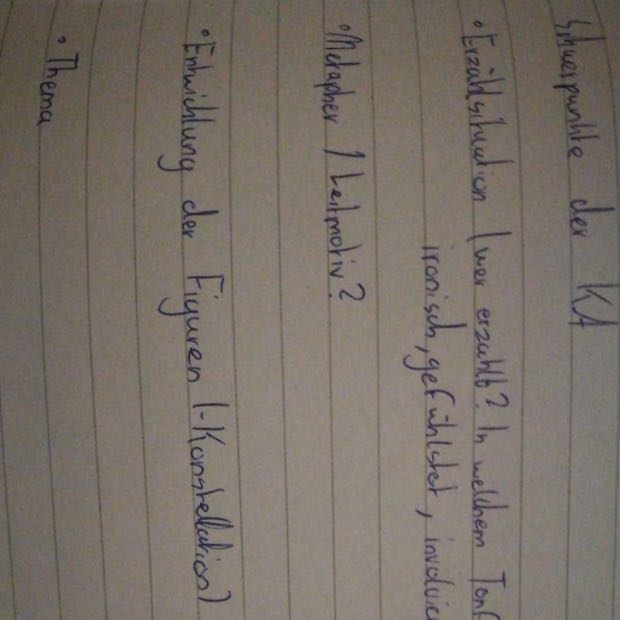 Schwerpunkte der KA
• Erzählsituation (wer erzählt? In welchem Tonf
ironisch, gefühlstot, involvie
• Metapher / Leitmotiv?
• Entwicklung der Figuren (-Konstellation)
• Thema